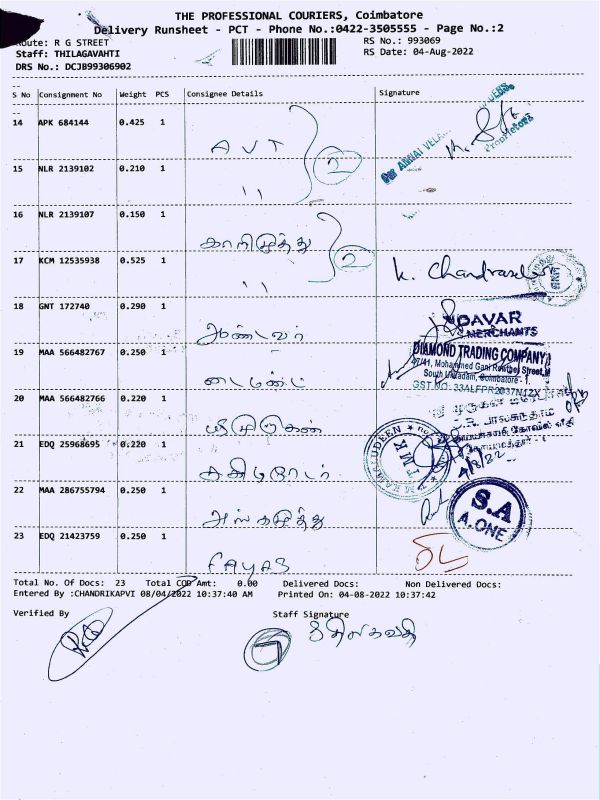 THE PROFESSIONAL COURIERS, Coimbatore
Delivery Runsheet - PCT - Phone No.:0422-3505555 - Page No.:2
Route: R G STREET
RS No.: 993069
Staff: THILAGAVAHTI
RS Date: 04-Aug-2022
DRS No.: DCJB99306902
S No Consignment No Weight PCS Consignee Details Signature
14 APK 684144 0.425 1 AVT
15 NLR 2139102 0.210 1 "
2
16 NLR 2139107 0.150 1 காளிமுத்து
17 KCM 12535938 0.525 1 "
2
K. Chandrasekar
18 GNT 172740 0.290 1
DAVAR
MERCHANTS
19 MAA 566482767 0.250 1 டைமண்ட்
DIAMOND TRADING COMPANY
47/41, Mohammed Gani Rowther Street,
South Ukkadam, Coimbatore - 1.
20 MAA 566482766 0.220 1
21 EDQ 25968695 0.220 1
4/8/22
22 MAA 286755794 0.250 1
S.A
A.ONE
23 EDQ 21423759 0.250 1 FAYAS
Total No. Of Docs: 23 Total COD Amt: 0.00 Delivered Docs: Non Delivered Docs:
Entered By :CHANDRIKAPVI 08/04/2022 10:37:40 AM Printed On: 04-08-2022 10:37:42
Verified By Staff Signature